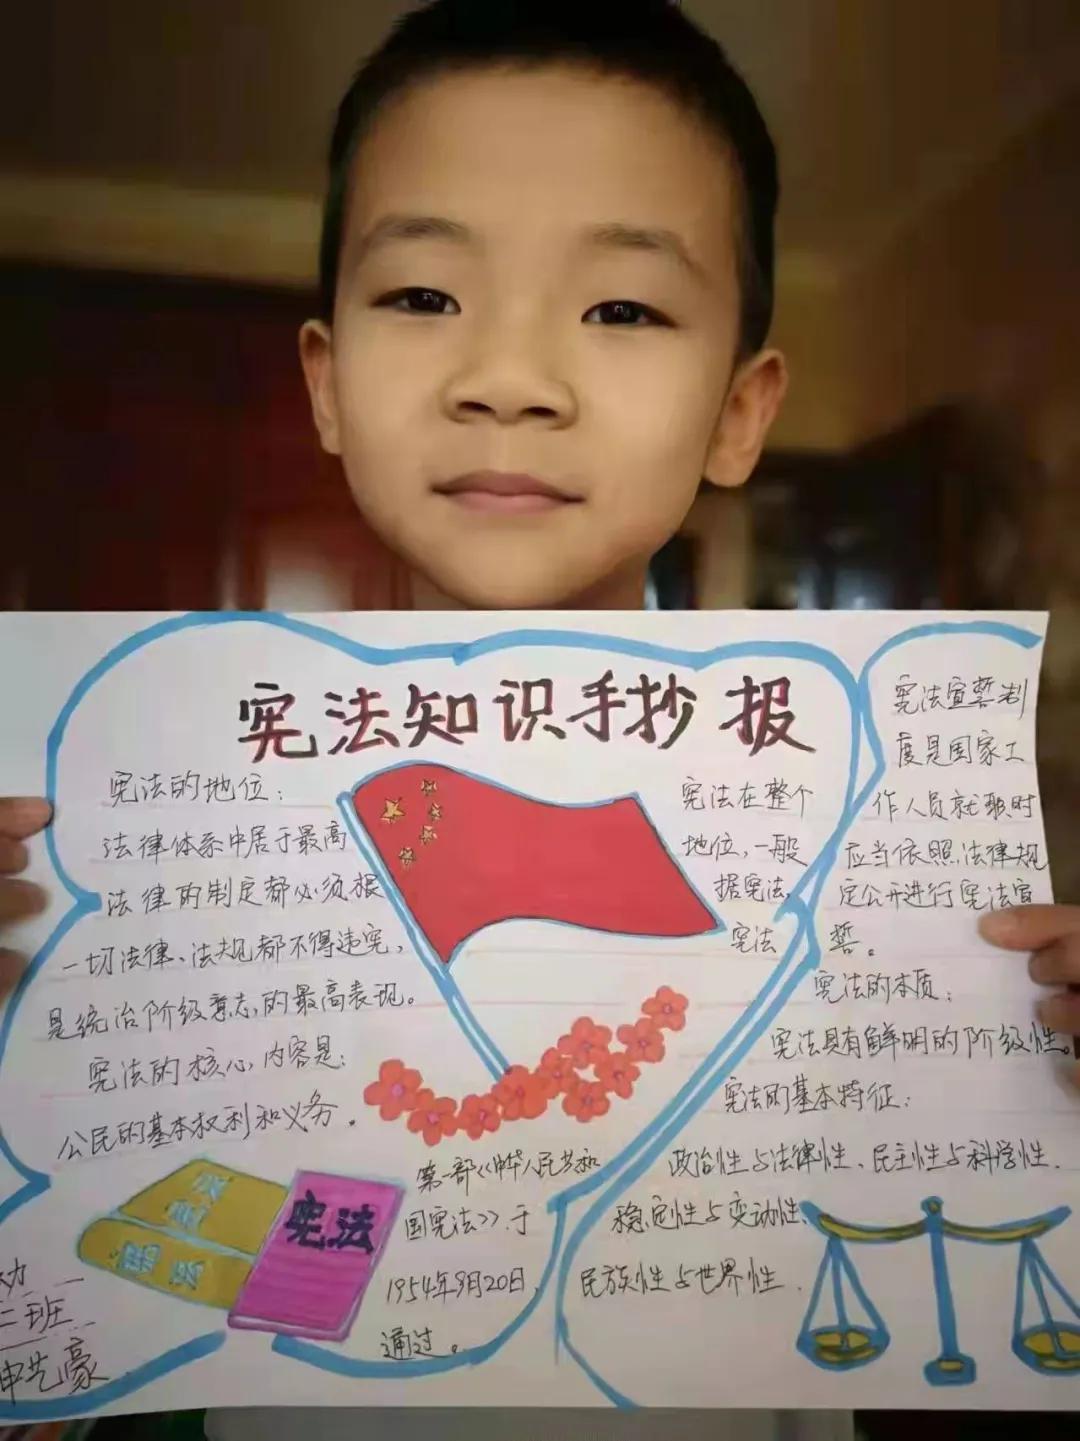 宪法知识手抄报
宪法的地位:
宪法在整个
法律体系中居于最高
地位,一般
法律的制定都必须根
据宪法,
一切法律、法规都不得违宪,
宪法
是统治阶级意志的最高表现。
宪法的核心内容是:
公民的基本权利和义务。
第一部《中华人民共和
国宪法》于
1954年9月20日,
通过。
宪法
宪法宣誓制
度是国家工
作人员就职时
应当依照法律规
定公开进行宪法宣
誓。
宪法的本质:
宪法具有鲜明的阶级性。
宪法的基本特征:
政治性与法律性、民主性与科学性、
稳定性与变动性、
民族性与世界性.
二班
申艺豪